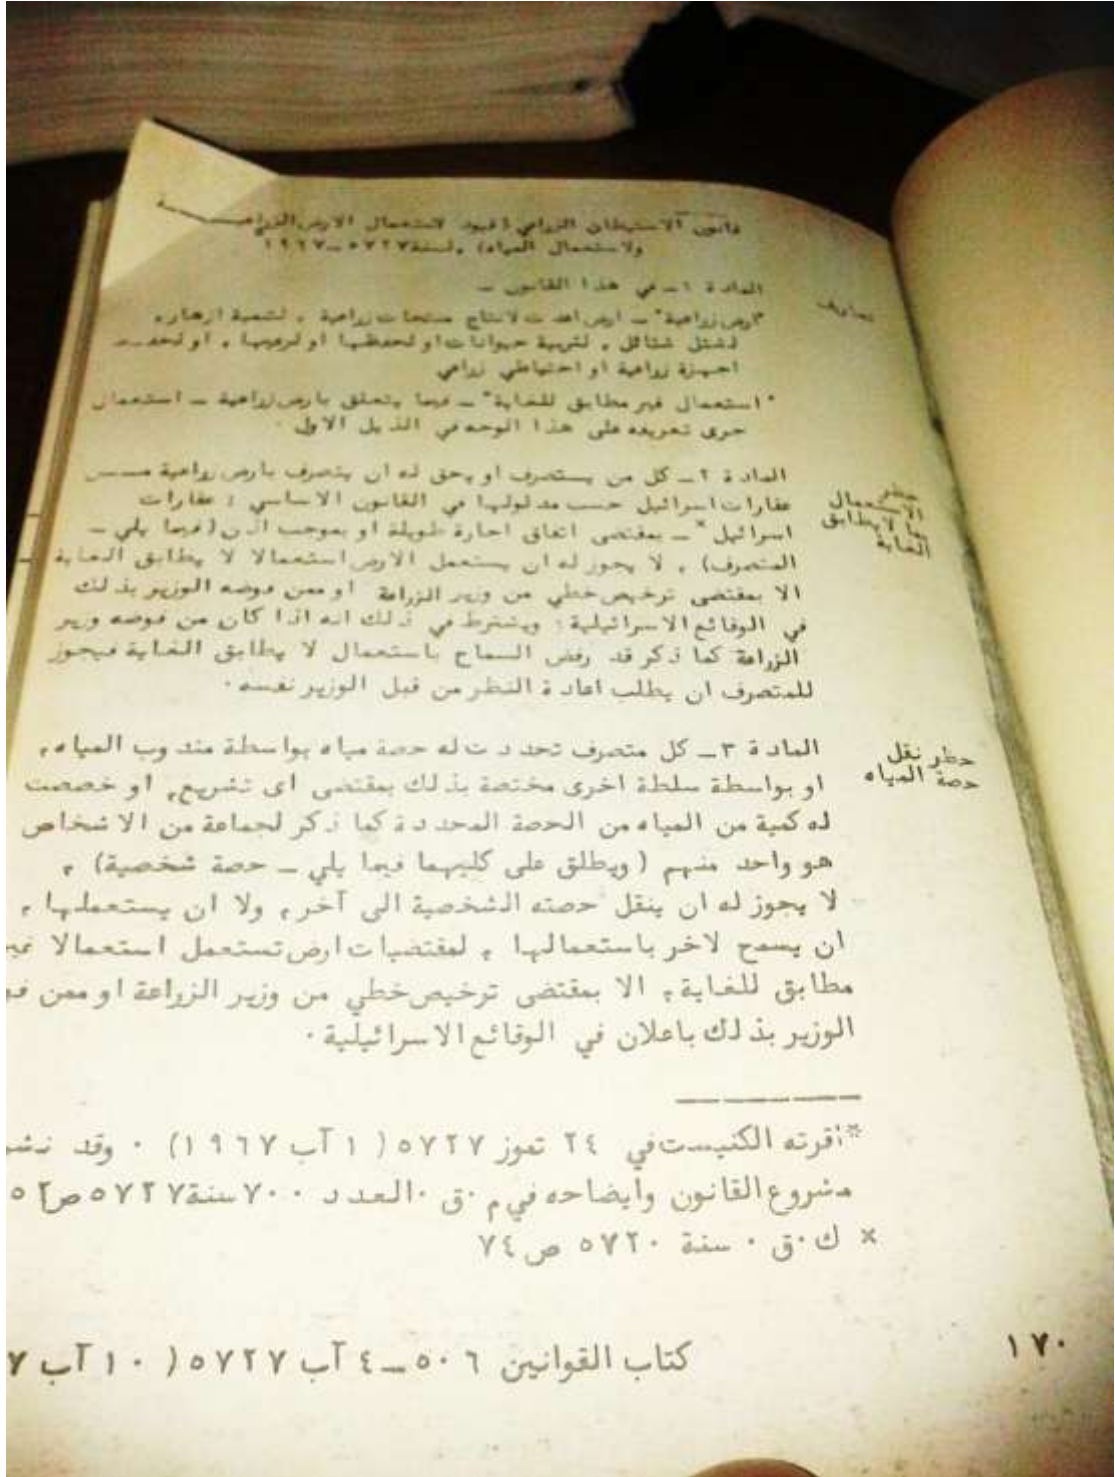 قانون الاستيطان الزراعي (قيود لاستعمال الارض الزراعية
ولاستعمال المياه)، لسنة ٥٧٢٧ــ١٩٦٧
تعاريف
المادة ١ــ في هذا القانون ــ
"ارض زراعية" ــ ارض اعدت لانتاج منتجات زراعية ، لتنمية ازهار،
لشتل شتائل ، لتربية حيوانات او لحفظها او لرعيها ، او لحفظ
اجهزة زراعية او احتياطي زراعي
" استعمال غير مطابق للغاية" ــ فيما يتعلق بارض زراعية ــ استعمال
جرى تعريفه على هذا الوجه في الذيل الاول ٠
حظر
الاستعمال
بما لا يطابق
الغاية
المادة ٢ــ كل من يتصرف او يحق له ان يتصرف بارض زراعية من
عقارات اسرائيل حسب مدلولها في القانون الاساسي : عقارات
اسرائيل* ــ بمقتضى اتفاق اجارة طويلة او بموجب اذن (فيما يلي ــ
المتصرف) ، لا يجوز له ان يستعمل الارض استعمالا لا يطابق الغاية
الا بمقتضى ترخيص خطي من وزير الزراعة او ممن فوضه الوزير بذلك
في الوقائع الاسرائيلية؛ ويشترط في ذلك انه اذا كان من فوضه وزير
الزراعة كما ذكر قد رفض السماح باستعمال لا يطابق الغاية فيجوز
للمتصرف ان يطلب اعادة النظر من قبل الوزير نفسه ٠
حظر نقل
حصة المياه
المادة ٣ــ كل متصرف تحددت له حصة مياه بواسطة مندوب المياه،
او بواسطة سلطة اخرى مختصة بذلك بمقتضى اى تشريع، او خصصت
له كمية من المياه من الحصة المحددة كما ذكر لجماعة من الاشخاص
هو واحد منهم ( ويطلق على كليهما فيما يلي ــ حصة شخصية) ،
لا يجوز له ان ينقل حصته الشخصية الى آخر، ولا ان يستعملها ،
ان يسمح لاخر باستعمالها ، لمقتضيات ارض تستعمل استعمالا غير
مطابق للغاية، الا بمقتضى ترخيص خطي من وزير الزراعة او ممن
الوزير بذلك باعلان في الوقائع الاسرائيلية ٠
*اقرته الكنيست في ٢٤ تموز ٥٧٢٧ (١ آب ١٩٦٧) ٠ وقد نشر
مشروع القانون وايضاحه في م ٠ق ٠العدد ٧٠٠ سنة ٥٧٢٧ ص
* ك ٠ق ٠ سنة ٥٧٢٠ ص ٧٤
كتاب القوانين ٥٠٦ــ٤ آب ٥٧٢٧ (١٠ آب
١٧٠